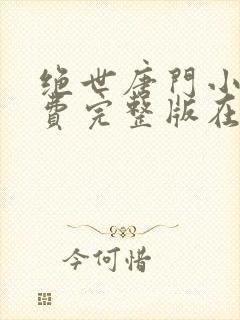 绝世唐門小
費完整版在
今何惜